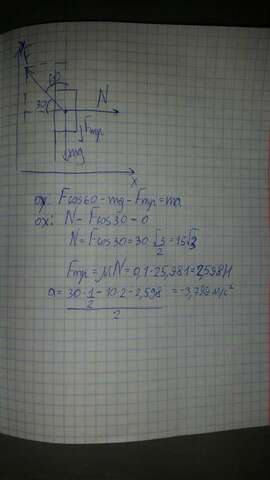 F
60
30
N
Fтр
mg
x
oy: Fcos60-mg-Fтр=ma
ox: N-Fcos30=0
N=Fcos30=30 √3/2=15√3
Fтр=μN=0,1·25,981=2,598Н
a=30·1/2-10·2-2,598/2=-3,799м/с²